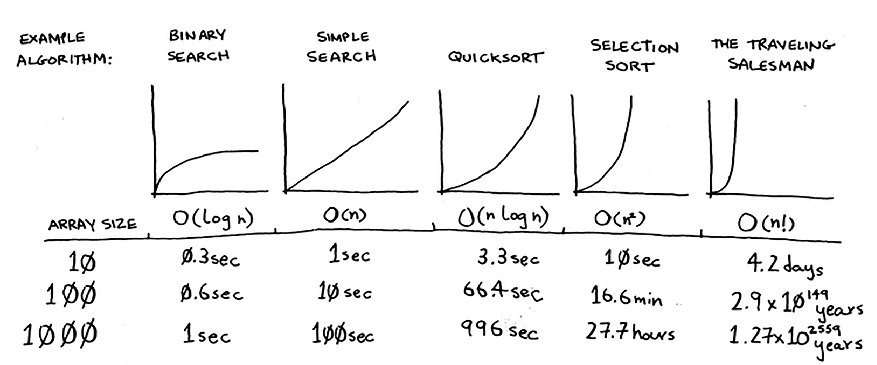 EXAMPLE ALGORITHM: BINARY SEARCH SIMPLE SEARCH QUICKSORT SELECTION SORT THE TRAVELING SALESMAN
ARRAY SIZE O(log n) O(n) O(n log n) O(n²) O(n!)
10 0.3sec 1sec 3.3sec 10sec 4.2 days
100 0.6sec 10sec 66.4sec 16.6min 2.9 x 10¹⁴⁹ years
1000 1sec 100sec 996 sec 27.7 hours 1.27x10²⁵⁵⁹ years